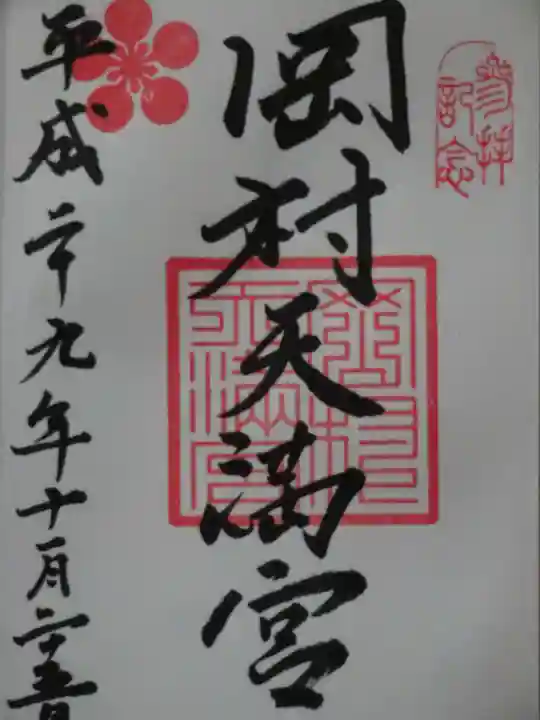 参拝
記念
岡村天満宮
平成二十九年十月二十五日